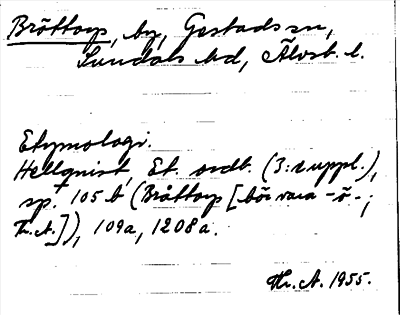 Bröttorp, by, Gestads sn,
Sundals hd, Älvsb. l.
Etymologi.
Hellquist, Et. ordb. (3:e uppl.),
sp. 105 b (Bråttorp [bör vara -ö-;
Hr. A.]), 109a, 1208a.
Hr. A. 1955.